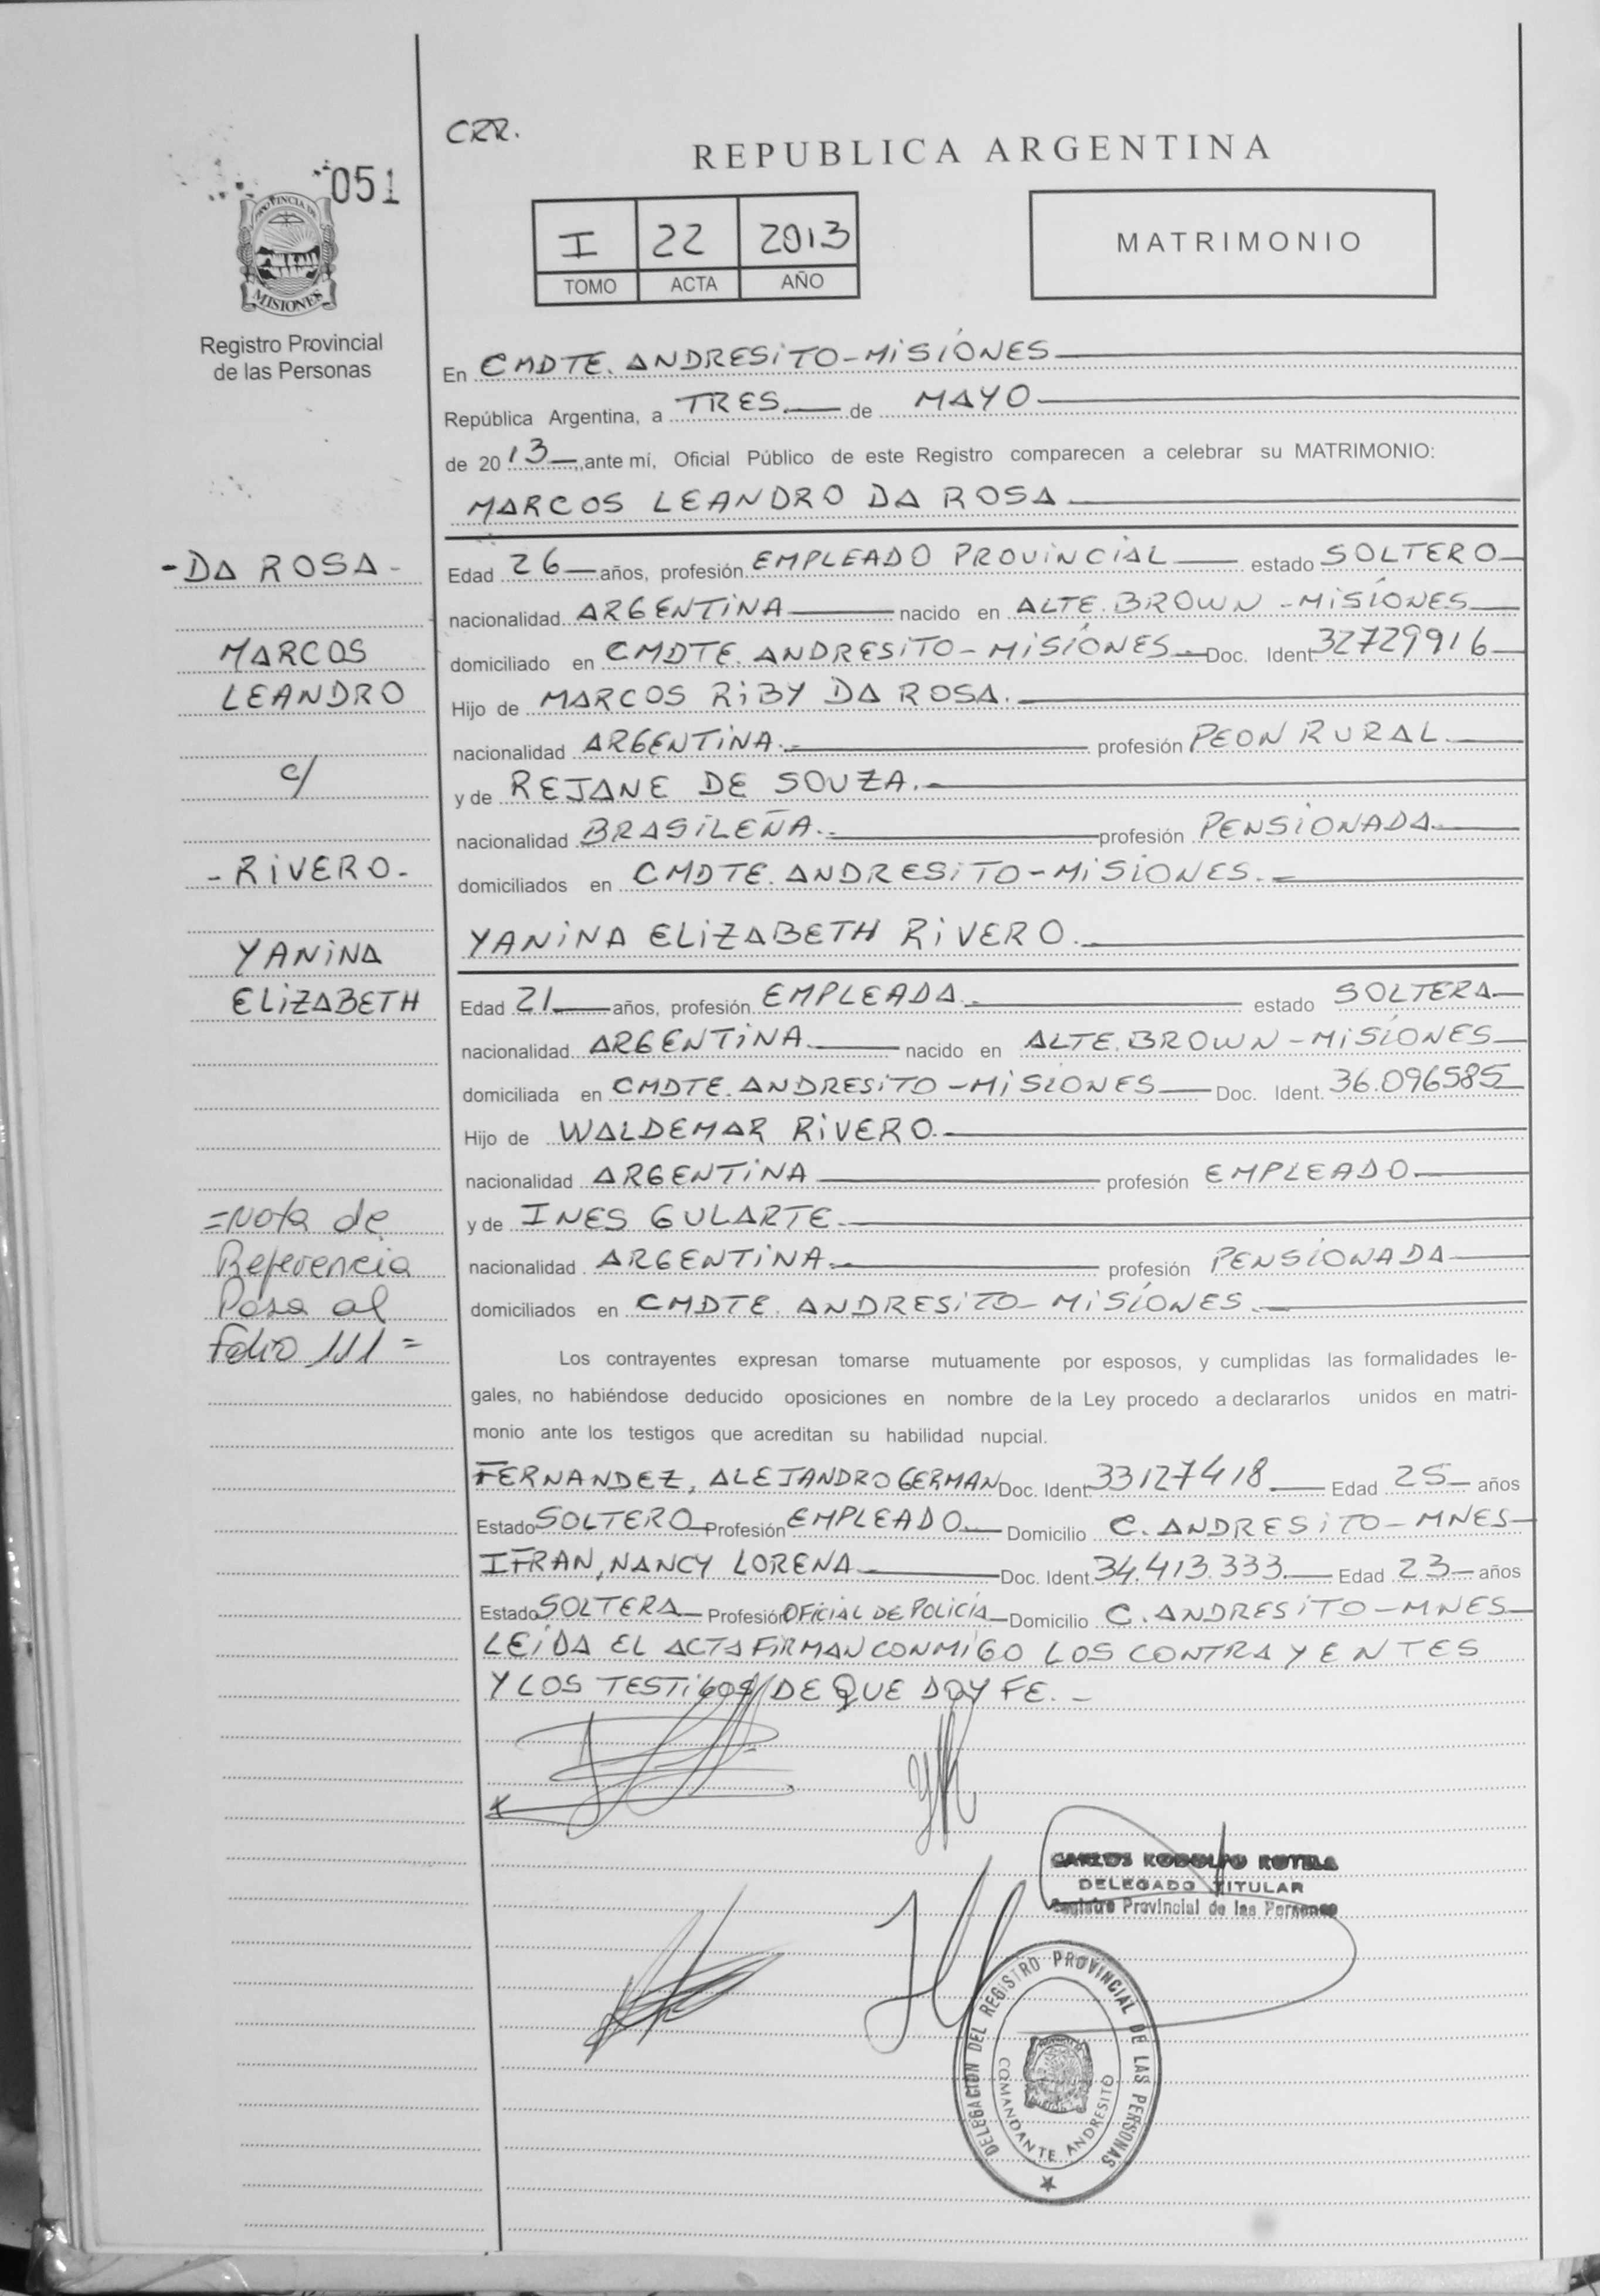 CRR.
REPUBLICA ARGENTINA
051
PROVINCIA DE
MISIONES
Registro Provincial
de las Personas
I 22 2013
TOMO ACTA AÑO
MATRIMONIO
En CMDTE. ANDRESITO-MISIONES
República Argentina, a TRES de MAYO
de 2013, ante mí, Oficial Público de este Registro comparecen a celebrar su MATRIMONIO:
MARCOS LEANDRO DA ROSA
-DA ROSA-
MARCOS
LEANDRO
c/
-RIVERO-
YANINA
ELIZABETH
Edad 26 años, profesión EMPLEADO PROVINCIAL estado SOLTERO
nacionalidad ARGENTINA nacido en ALTE. BROWN - MISIONES
domiciliado en CMDTE. ANDRESITO - MISIONES Doc. Ident. 32729916
Hijo de MARCOS RIBY DA ROSA.
nacionalidad ARGENTINA. profesión PEON RURAL.
y de REJANE DE SOUZA.
nacionalidad BRASILEÑA. profesión PENSIONADA
domiciliados en CMDTE. ANDRESITO-MISIONES.
YANINA ELIZABETH RIVERO.
Edad 21 años, profesión EMPLEADA. estado SOLTERA
nacionalidad ARGENTINA nacido en ALTE. BROWN - MISIONES
domiciliada en CMDTE. ANDRESITO - MISIONES Doc. Ident. 36.096585
Hijo de WALDEMAR RIVERO.
nacionalidad ARGENTINA profesión EMPLEADO
y de INES GULARTE.
nacionalidad ARGENTINA. profesión PENSIONADA
domiciliados en CMDTE. ANDRESITO - MISIONES.
=Nota de
Referencia
Pasa al
Folio 111=
Los contrayentes expresan tomarse mutuamente por esposos, y cumplidas las formalidades le-
gales, no habiéndose deducido oposiciones en nombre de la Ley procedo a declararlos unidos en matri-
monio ante los testigos que acreditan su habilidad nupcial.
FERNANDEZ, ALEJANDRO GERMAN Doc. Ident. 33127418 Edad 25 años
Estado SOLTERO Profesión EMPLEADO Domicilio C. ANDRESITO - MNES
IFRAN, NANCY LORENA Doc. Ident. 34.413.333 Edad 23 años
Estado SOLTERA Profesión OFICIAL DE POLICIA Domicilio C. ANDRESITO - MNES
LEIDA EL ACTA FIRMAN CONMIGO LOS CONTRAYENTES
Y LOS TESTIGOS DE QUE DOY FE.-
CARLOS RODOLFO ROTELA
DELEGADO TITULAR
Registro Provincial de las Personas
DELEGACION DEL REGISTRO PROVINCIAL DE LAS PERSONAS
COMANDANTE ANDRESITO